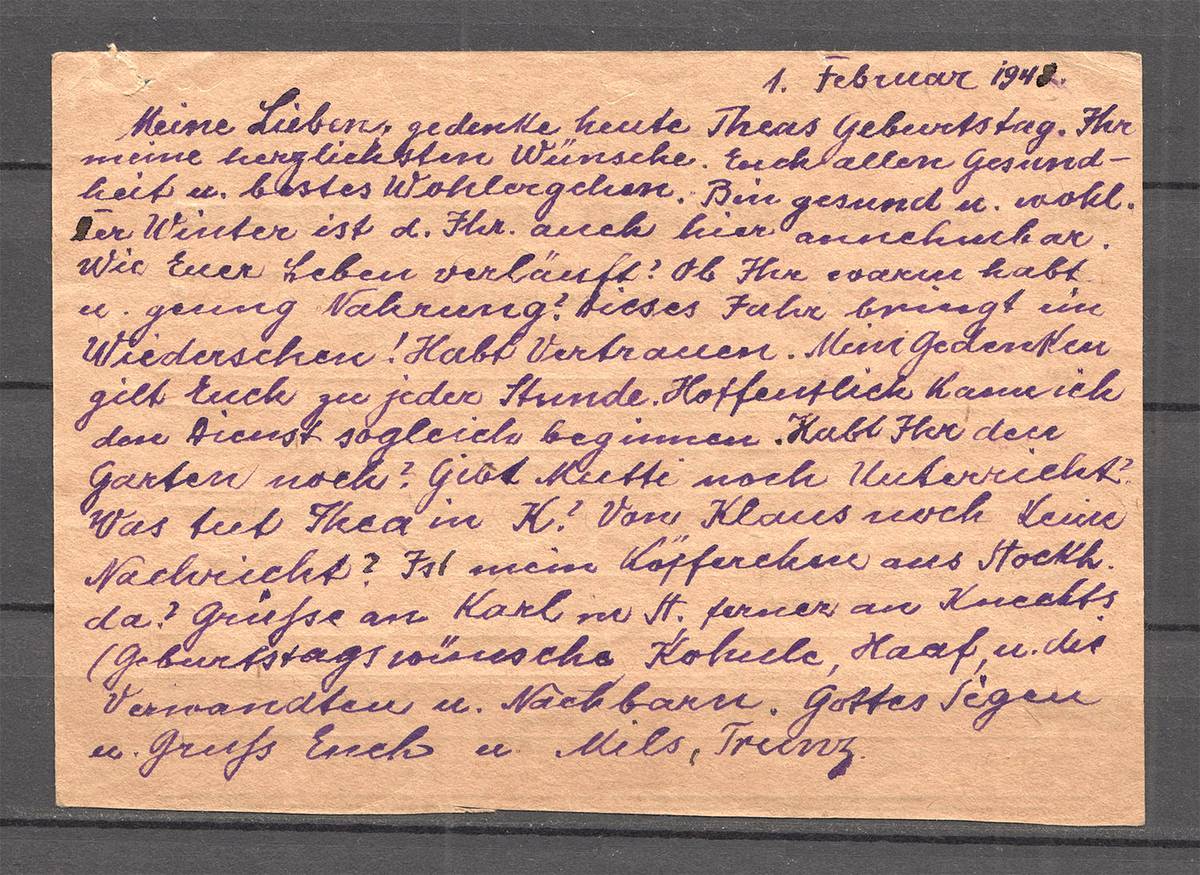 1. Februar 1948.
Meine Lieben, gedenke heute Theas Geburtstag. Ihr
meine herzlichsten Wünsche. Euch allen Gesund-
heit u. bestes Wohlergehen. Bin gesund u. wohl.
Der Winter ist d. Jhr. auch hier annehmbar.
Wie Euer Leben verläuft? Ob Ihr warm habt
u. genug Nahrung? Dieses Jahr bringt ein
Wiedersehen! Habt Vertrauen. Mein Gedenken
gilt Euch zu jeder Stunde. Hoffentlich kann ich
den Dienst sogleich beginnen. Habt Ihr den
Garten noch? Gibt Mutti noch Unterricht?
Was tut Thea in K? Von Klaus noch keine
Nachricht? Ist mein Köfferchen aus Stockh.
da? Grüße an Karl in St. ferner an Knechts
(Geburtstagswünsche, Haaf, u. die
Verwandten u. Nachbarn. Gottes Segen
u. Gruß Euch u